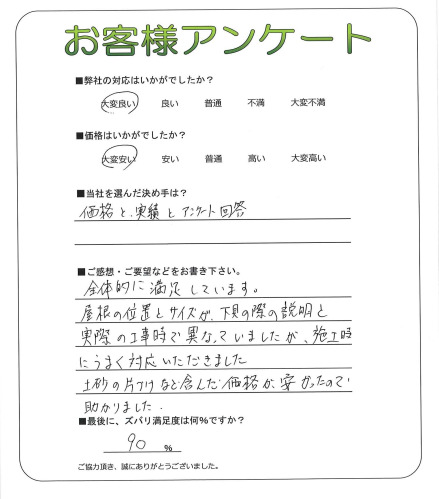 お客様アンケート
■弊社の対応はいかがでしたか？
大変良い 良い 普通 不満 大変不満
■価格はいかがでしたか？
大変安い 安い 普通 高い 大変高い
■当社を選んだ決め手は？
価格と、実績とアンケート回答
■ご感想・ご要望などをお書き下さい。
全体的に満足しています。
屋根の位置とサイズが、下見の際の説明と
実際の工事時で異なっていましたが、施工時
にうまく対応いただきました
土砂の片づけなど含んだ価格が、安かったので
助かりました.
■最後に、ズバリ満足度は何％ですか？
90 ％
ご協力頂き、誠にありがとうございました。